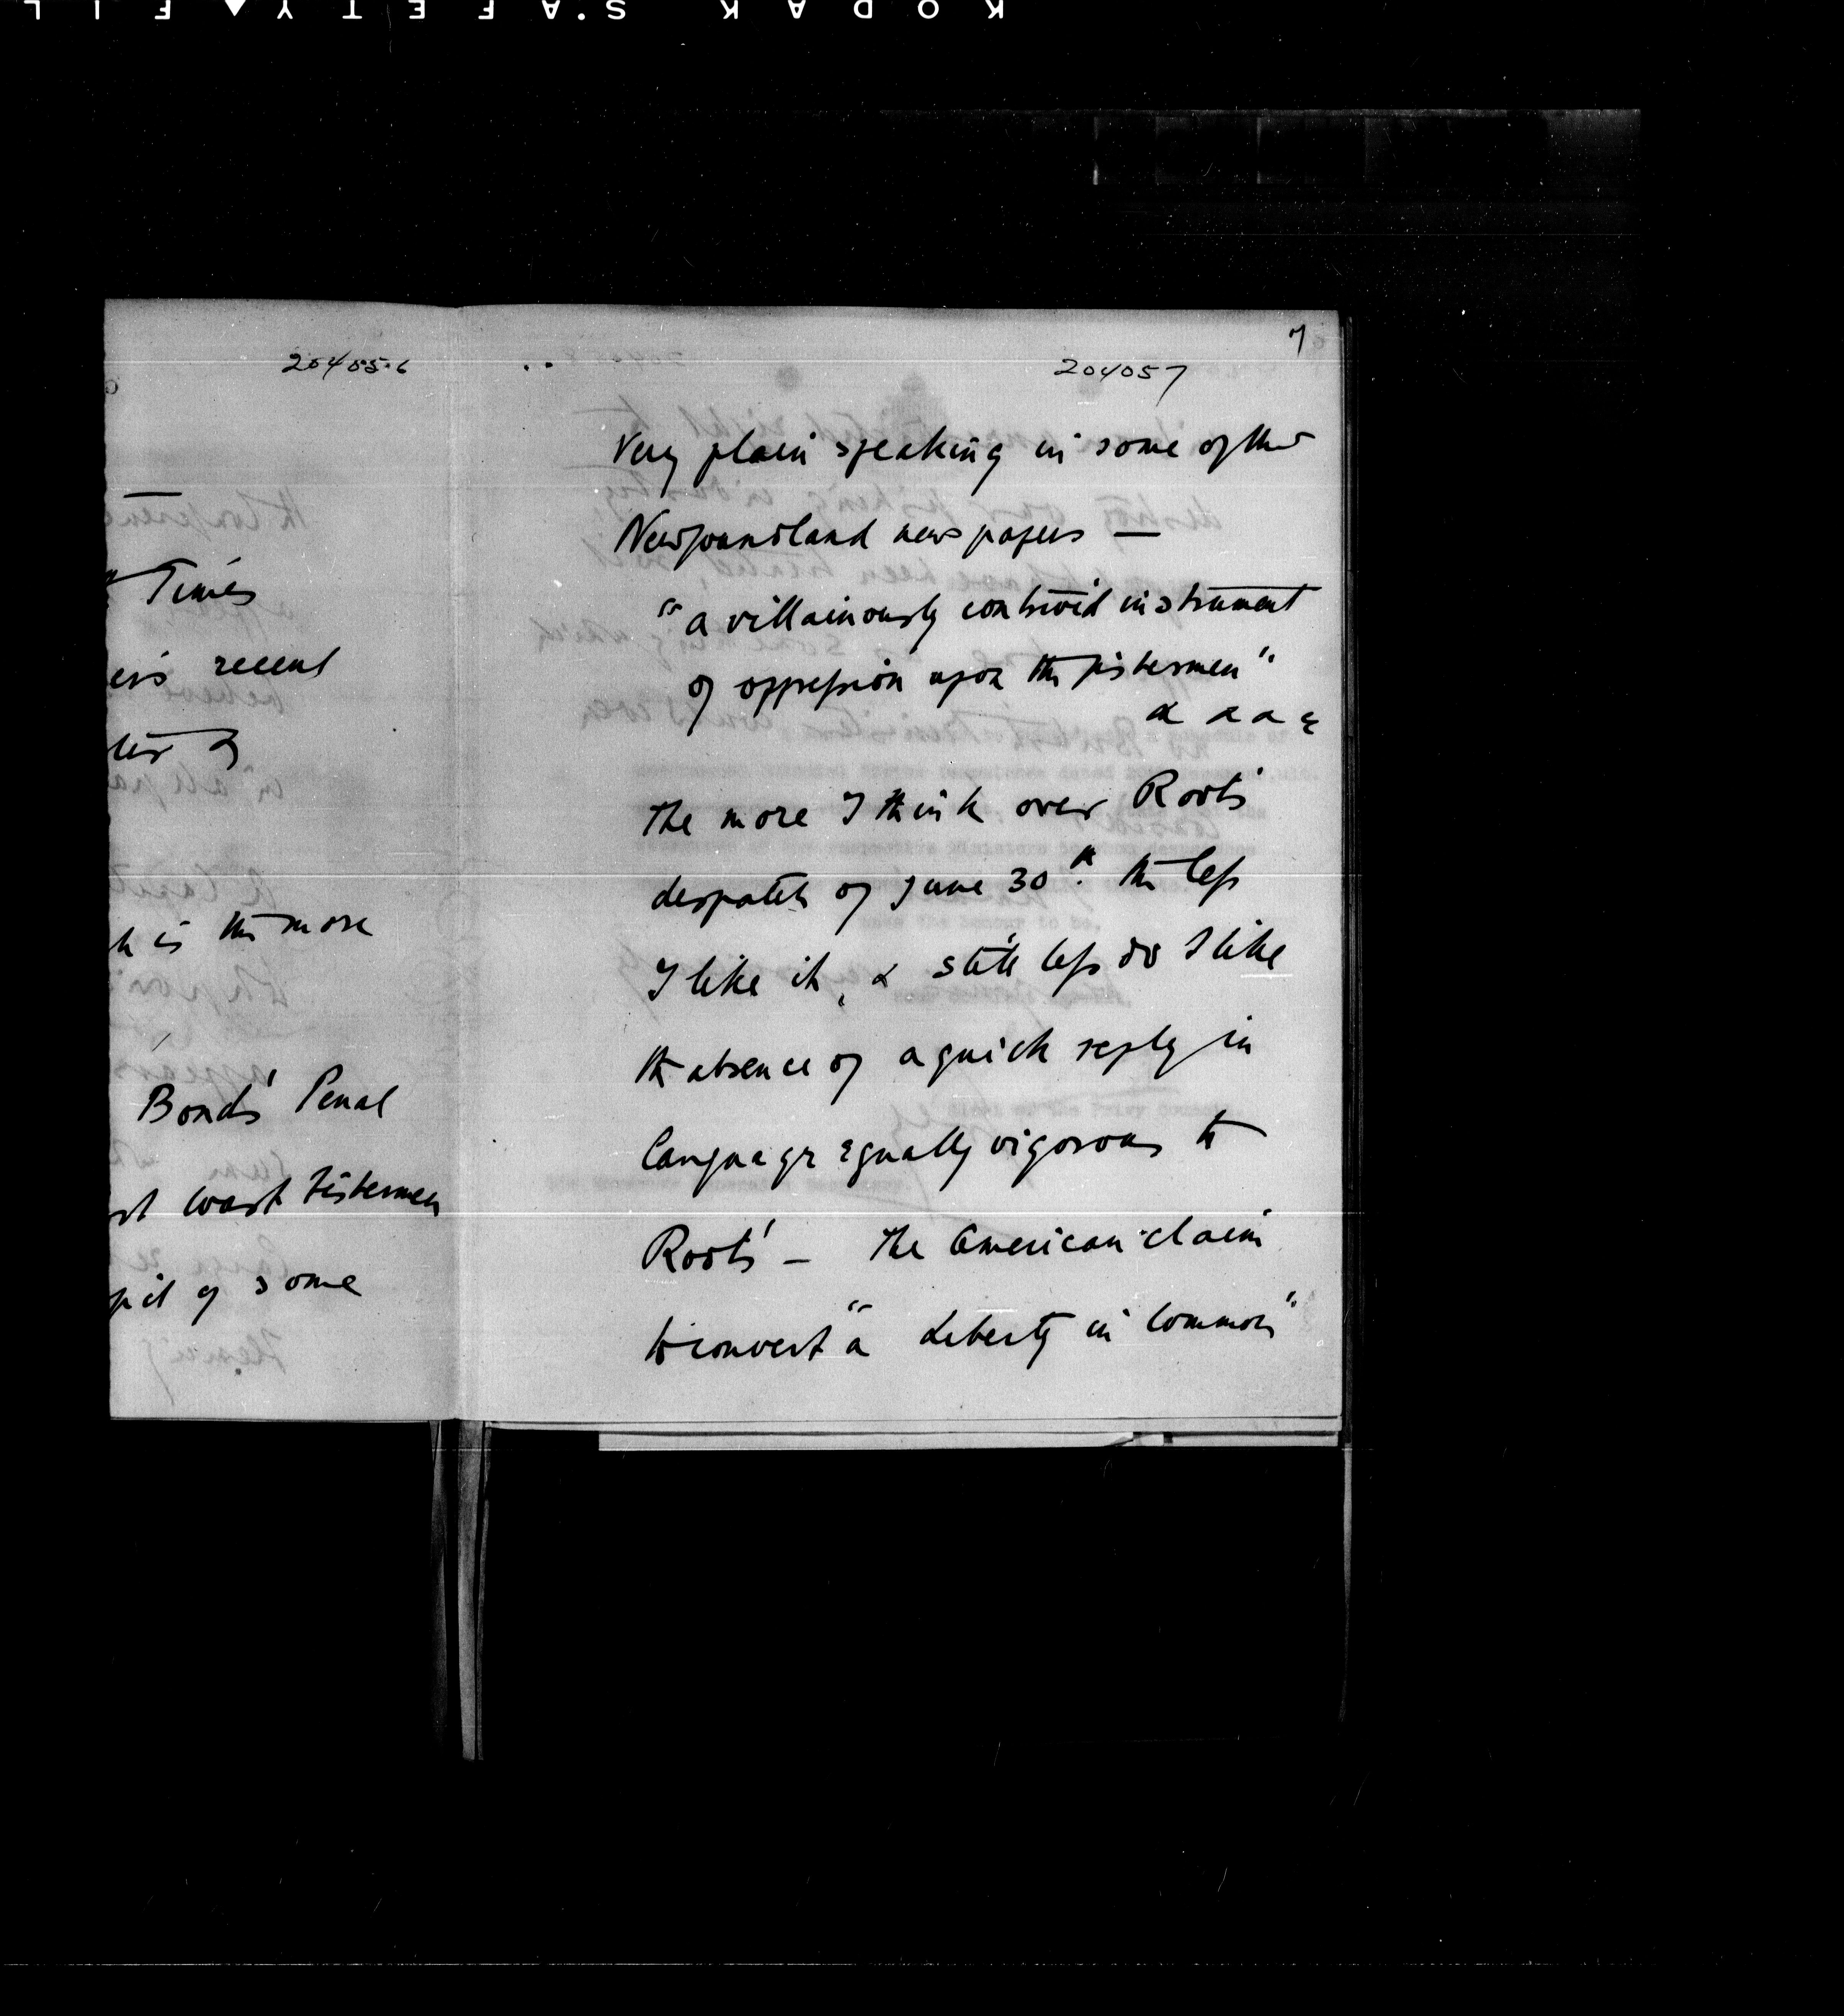 KODAK S.AFETY FIL
204056
Times
recent
is the more
Bonds' Penal
coast Fishermen
some
7
204057
Very plain speaking in some of the
Newfoundland newspapers —
"a villainously contrived instrument
of oppression upon the fishermen"
& & & &
The more I think over Roots'
despatch of June 30th. the less
I like it, & still less do I like
the absence of a quick reply in
language equally vigorous to
Roots' — The American claim
to convert "a Liberty in Common"